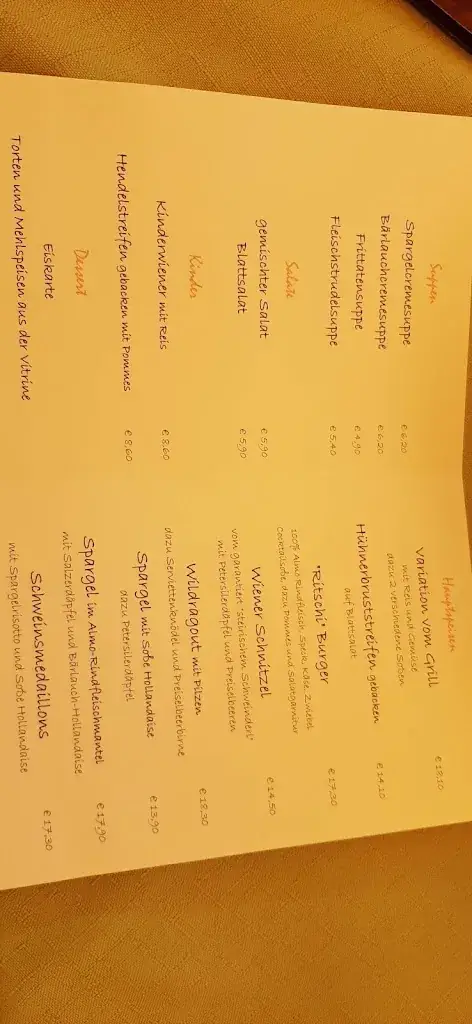 Suppen
Spargelcremesuppe € 6,20
Bärlauchcremesuppe € 6,20
Frittatensuppe € 4,90
Fleischstrudelsuppe € 5,40
Salate
gemischter Salat € 5,90
Blattsalat € 5,90
Kinder
Kinderwiener mit Reis € 8,60
Hendelstreifen gebacken mit Pommes € 8,60
Dessert
Eiskarte
Torten und Mehlspeisen aus der Vitrine
Hauptspeisen
Variation vom Grill € 18,10
mit Reis und Gemüse
dazu 2 verschiedene Soßen
Hühnerbruststreifen gebacken € 14,10
auf Blattsalat
"Ritschi" Burger € 17,30
100% Almo Rindfleisch, Speck, Käse, Zwiebel
Cocktailsoße, dazu Pommes und Salatgarnitur
Wiener Schnitzel € 14,50
vom garantiert "steirischem Schweinderl"
mit Petersilerdäpfel und Preiselbeeren
Wildragout mit Pilzen € 18,30
dazu Serviettenknödel und Preiselbeerbirne
Spargel mit Soße Hollandaise € 13,90
dazu Petersilerdäpfel
Spargel im Almo-Rindfleischmantel € 17,90
mit Salzerdäpfel und Bärlauch-Hollandaise
Schweinsmedaillons € 17,30
mit Spargelrisotto und Soße Hollandaise